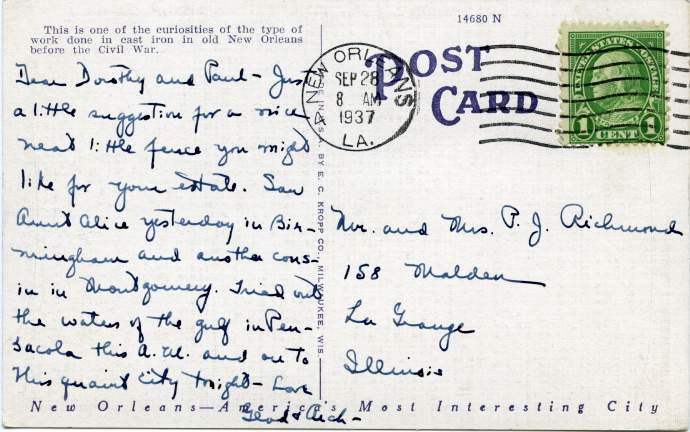 This is one of the curiosities of the type of
work done in cast iron in old New Orleans
before the Civil War.
14680 N
POST
CARD
NEW ORLEANS
SEP 28
8 AM
1937
LA.
UNITED STATES POSTAGE
1 CENT 1
Dear Dorothy and Paul – Just
a little suggestion for a nice
neat little fence you might
like for your estate. Saw
Aunt Alice yesterday in Bir-
mingham and another cous-
in in Montgomery. Tried out
the waters of the gulf in Pen-
sacola this A.M. and on to
this quaint city tonight – Love
& Rich –
BY E. C. KROPP CO., MILWAUKEE, WIS.
Mr. and Mrs. P. J. Richmond
158 Malden
La Grange
Illinois
New Orleans—America's Most Interesting City